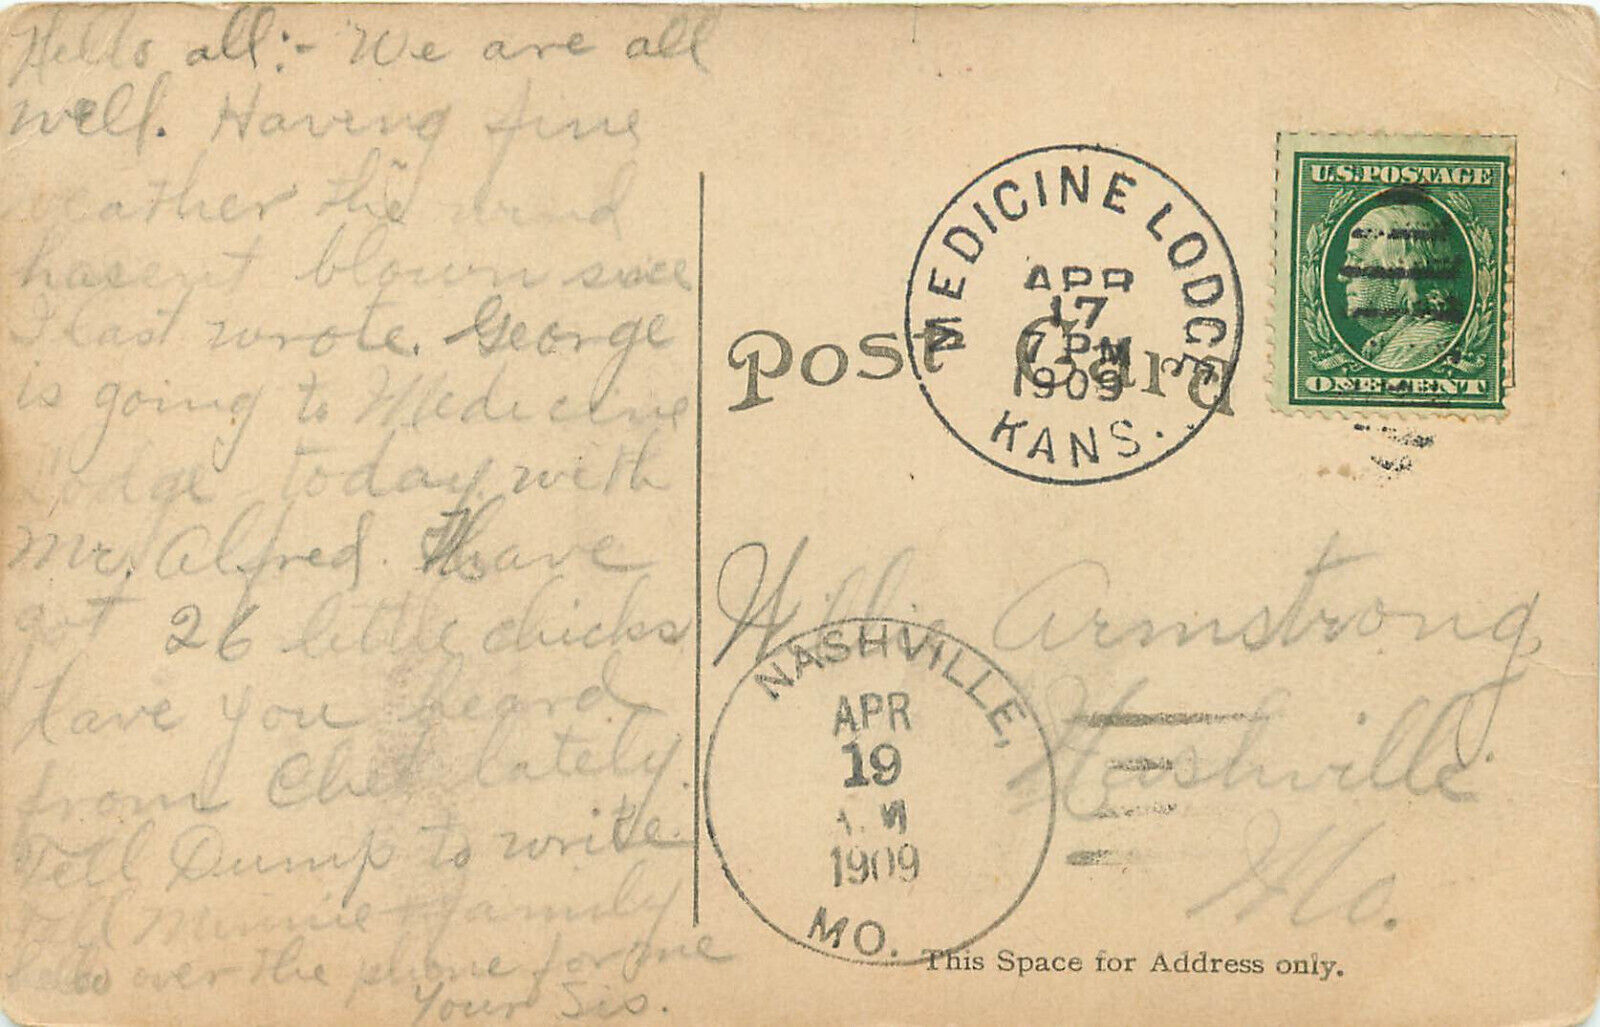 Hello all:- We are all
well. Having fine
weather the wind
hasent blown since
I last wrote. George
is going to Medicine
Lodge today with
Mr. Alfred. Have
got 26 little chicks
have you heard
from Chet lately.
Tell Dump to write.
tell Minnie + family
hello over the phone for me
Your Sis.
Post Card
MEDICINE LODGE
APR
17
7 PM
1909
KANS.
U.S. POSTAGE
ONE CENT
Willie Armstrong
Nashville
Mo.
NASHVILLE,
APR
19
M
1909
MO.
This Space for Address only.